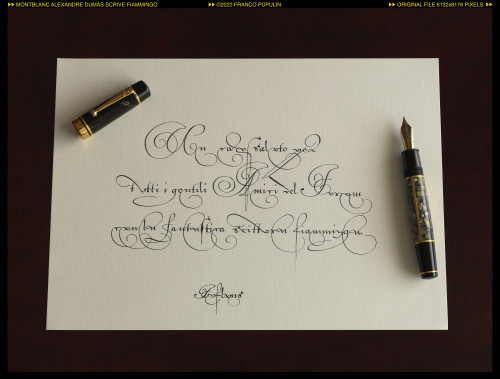 MONTBLANC ALEXANDRE DUMAS SCRIVE FIAMMINGO ©2022 FRANCO PUPULIN ORIGINAL FILE 8132x6176 PIXELS
Un caro saluto
Tutti i gentili Amici del Forum
con la fantastica scrittura fiamminga